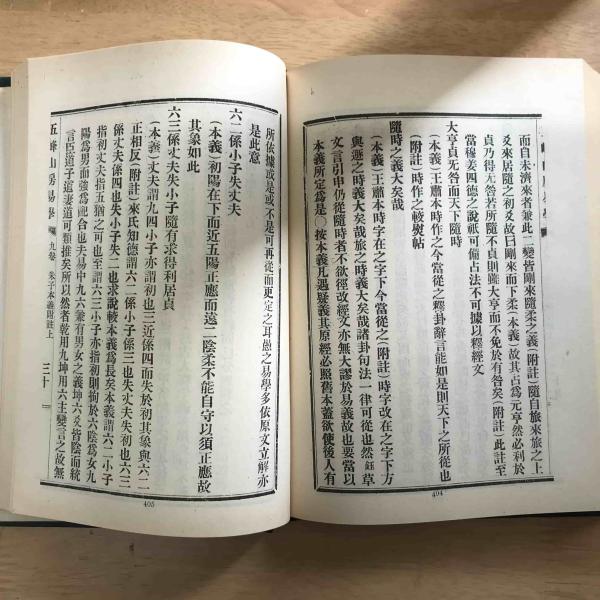 而自未濟來者兼此二變皆剛來隨柔之義(附註)隨自旅來旅之上
爻來居隨之初爻故曰剛來而下柔(本義)故其占爲元亨然必利於
貞乃得无咎若所隨不貞則雖大亨而不免於有咎矣(附註)此註至
當穆姜四德之說祗可備占法不可據以釋經文
大亨貞无咎而天下隨時
(本義)王肅本時作之今當從之釋卦辭言能如是則天下之所從也
(附註)時作之較熨帖
隨時之義大矣哉
(本義)王肅本時字在之字下今當從之(附註)時字改在之字下方
與遯之時義大矣哉旅之時義大矣哉諸卦句法一律可從也然鈺草
文言引申仍從隨時者不欲徑改經文亦無大謬於易義故也要當以
本義所定爲是○按本義凡遇疑義其原經必照舊本蓋欲使後人有
404
所依據或是或不是可再從而更定之耳愚之易學多依原文立解亦
是此意
六二係小子失丈夫
(本義)初陽在下而近五陽正應而遠二陰柔不能自守以須正應故
其象如此
六三係丈夫失小子隨有求得利居貞
(本義)丈夫謂九四小子亦謂初也三近係四而失於初其象與六二
正相反(附註)來氏知德謂六二係小子係三也失丈夫失初也六三
係丈夫係四也失小子失二也求說較本義爲長矣本義謂六二小子
指初丈夫指五猶之可也至謂六三小子亦指初則拘於六陰爲女九
陽爲男而強爲配合也夫易中九六兼有男女之義坤六爻皆陰而統
言臣道子道妻道可類推矣所以然者乾用九坤用六主變言之故無
五峰山房易學 九卷 朱子本義附註上 三十
405